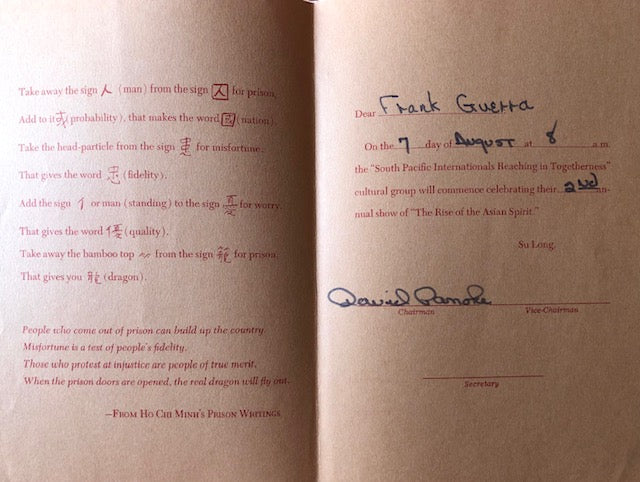 Take away the sign 人 (man) from the sign 囚 for prison,
Add to it 或 (probability), that makes the word 國 (nation).
Take the head-particle from the sign 患 for misfortune:
That gives the word 忠 (fidelity).
Add the sign 亻 for man (standing) to the sign 憂 for worry
That gives the word 優 (quality).
Take away the bamboo top from the sign 籠 for prison
That gives you 龍 (dragon).
People who come out of prison can build up the country.
Misfortune is a test of people's fidelity.
Those who protest at injustice are people of true merit.
When the prison doors are opened, the real dragon will fly out.
—FROM HO CHI MINH'S PRISON WRITINGS
Dear Frank Guerra
On the 7 day of August at 8 a.m.
the "South Pacific Internationals Reaching in Togetherness"
cultural group will commence celebrating their 2nd an-
nual show of "The Rise of the Asian Spirit."
Su Long,
David Panoke
Chairman Vice-Chairman
Secretary